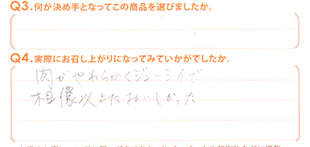 Q3.何が決め手となってこの商品を選びましたか。
Q4.実際にお召し上がりになってみていかがでしたか。
肉がやわらかくジューシィで
想像以上においしかった